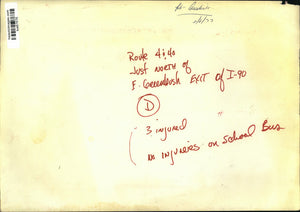 Route 4 & 40
Just NORTH of
E. Greenbush EXIT of I-90
D
3 injured
no injuries on School Bus